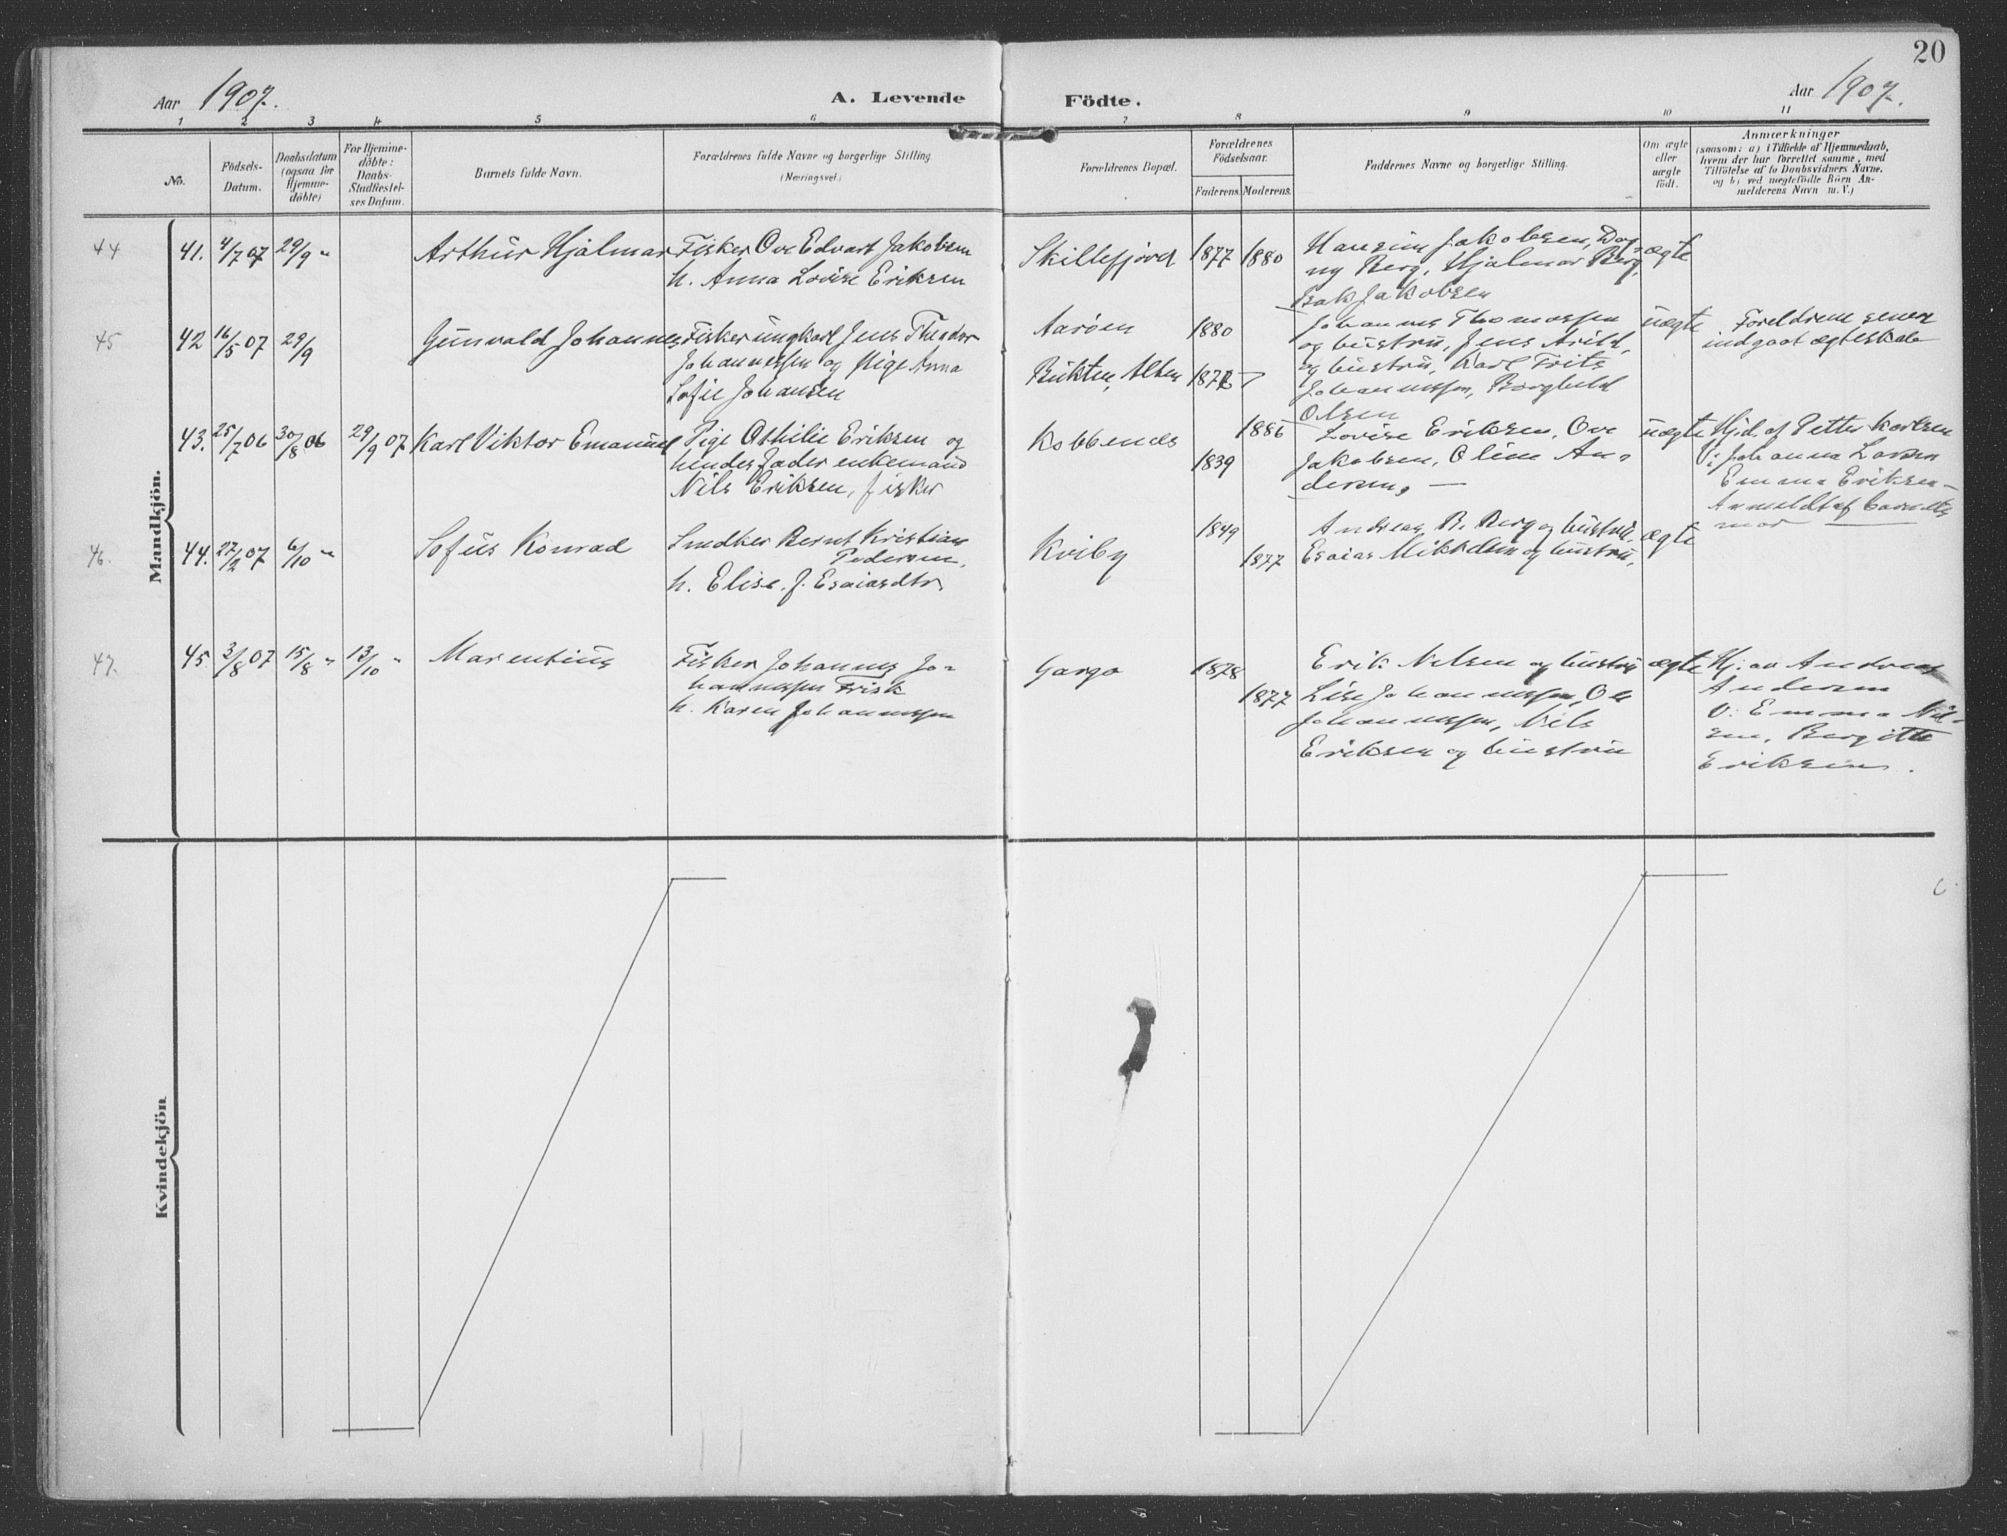 20
Aar 1907.
A. Levende Födte.
Aar 1907.
1 2 3 4 5 6 7 8 9 10 11
No.
Födsels-
Datum.
Daabsdatum
(ogsaa for
Hjemme-
döbte)
For Hjemme-
döbte:
Daabs-
Stadfæstel-
ses Datum.
Barnets fulde Navn.
Forældrenes fulde Navne og borgerlige Stilling.
(Næringsvei.)
Forældrenes Bopæl.
Forældrenes
Födselsaar.
Faderens. Moderens.
Faddernes Navne og borgerlige Stilling.
Om ægte
eller
uægte
født.
Anmærkninger
(saasom: a) i Tilfælde af Hjemmedaab,
hvem der har forrettet samme, med
Tilföielse af to Daabsvidners Navne,
og b) ved uægtefödte Börn An-
melderens Navn m. V.)
Mandkjön.
44 41. 4/7 07 29/9 " Arthur Hjalmar
Fisker Ove Edvart Jakobsen
h. Anna Lovise Eriksen
Skillefjord 1877 1880
Hansine Jakobsen, Dag-
ny Berg, Hjalmar Berg
Isak Jakobsen
ægte
45 42 16/5 07 29/9 Gunvald Johannes
Fisker ungkarl Jens Theodor
Johannessen og Pige Anna
Sofie Johansen
Aarøen 1880
Bukten, Alten 187
Johannes Thomassen
og hustru, Jens Arild,
og hustru, Karl Frits
Johannessen, Borghild
Olsen
uægte
Foreldrene senere
indgaat ægteskab
43. 25/7 06 30/8 06 29/9 07 Karl Viktor Emanuel
Pige Othilie Eriksen og
hendes fader enkemand
Nils Eriksen, fisker
Kobbenes 1886
1839
Lovise Eriksen, Ove
Jakobsen, Oline An-
dersen, —
uægte
Hjd. af Petter Karlsen
V: Johanna Larsen
Emma Eriksen —
Anmeldt af barnets
mor
46. 44. 27/2 07 6/10 " Sofus Konrad
Smedker Bernt Kristian
Pedersen,
h. Elise f. Esaiasdtr.
Kviby 1849
1877
Andreas B. Berg og hustru,
Esaias Mikkelsen og hustru,
ægte
47. 45 3/8 07 15/8 " 13/10 " Marentius
Fisker Johannes Jo-
hannessen Frisk
h. Karen Johannessen
Gargo 1878
1877
Erik Nilsen og hustru
Lise Johannessen, Ole
Johannessen, Nils
Eriksen og hustru
ægte
Hj. av Andreas
Andersen
V: Emma Nil-
sen, Bergitte
Eriksen.
Kvindekjön